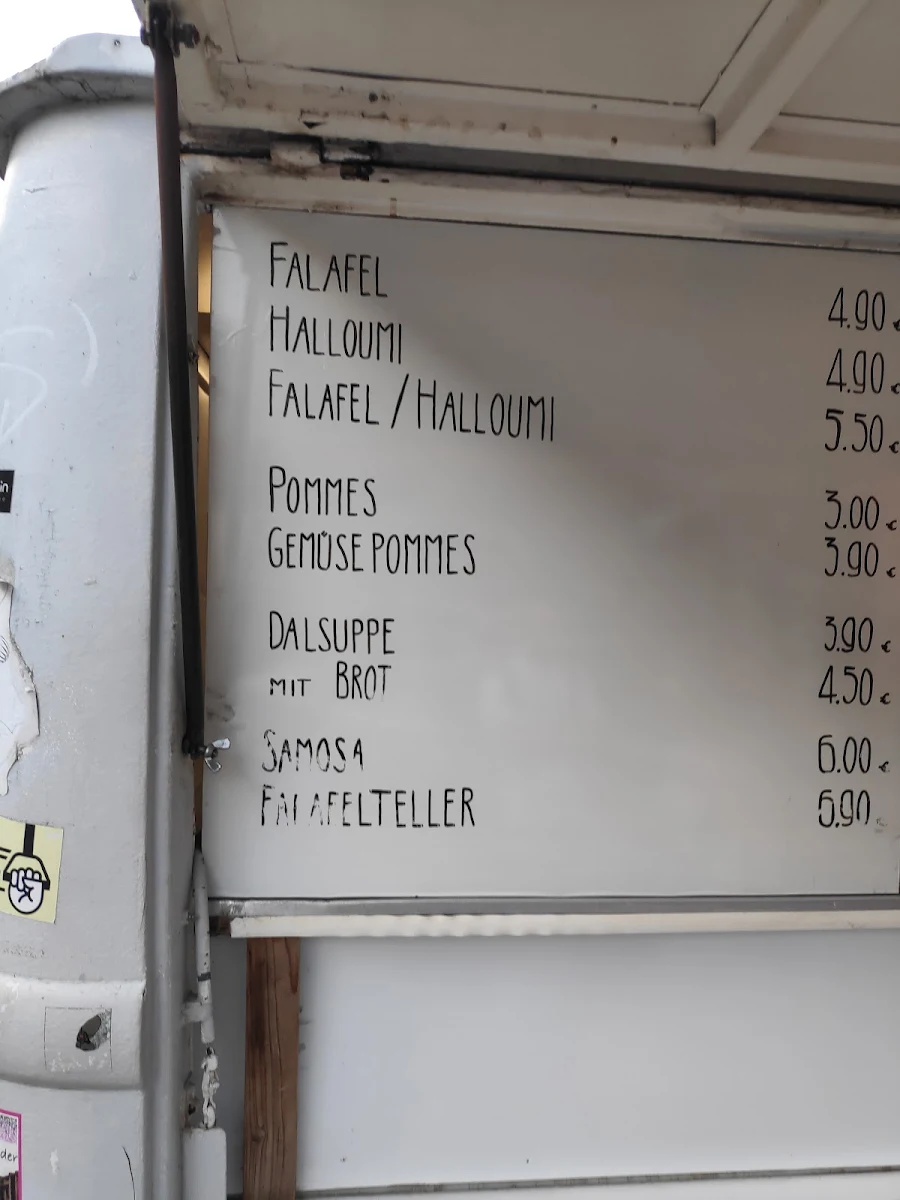 FALAFEL 4.90 €
HALLOUMI 4.90 €
FALAFEL / HALLOUMI 5.50 €
POMMES 3.00 €
GEMÜSEPOMMES 3.90 €
DALSUPPE 3.90 €
MIT BROT 4.50 €
SAMOSA 6.00 €
FALAFELTELLER 6.90 €
in
der